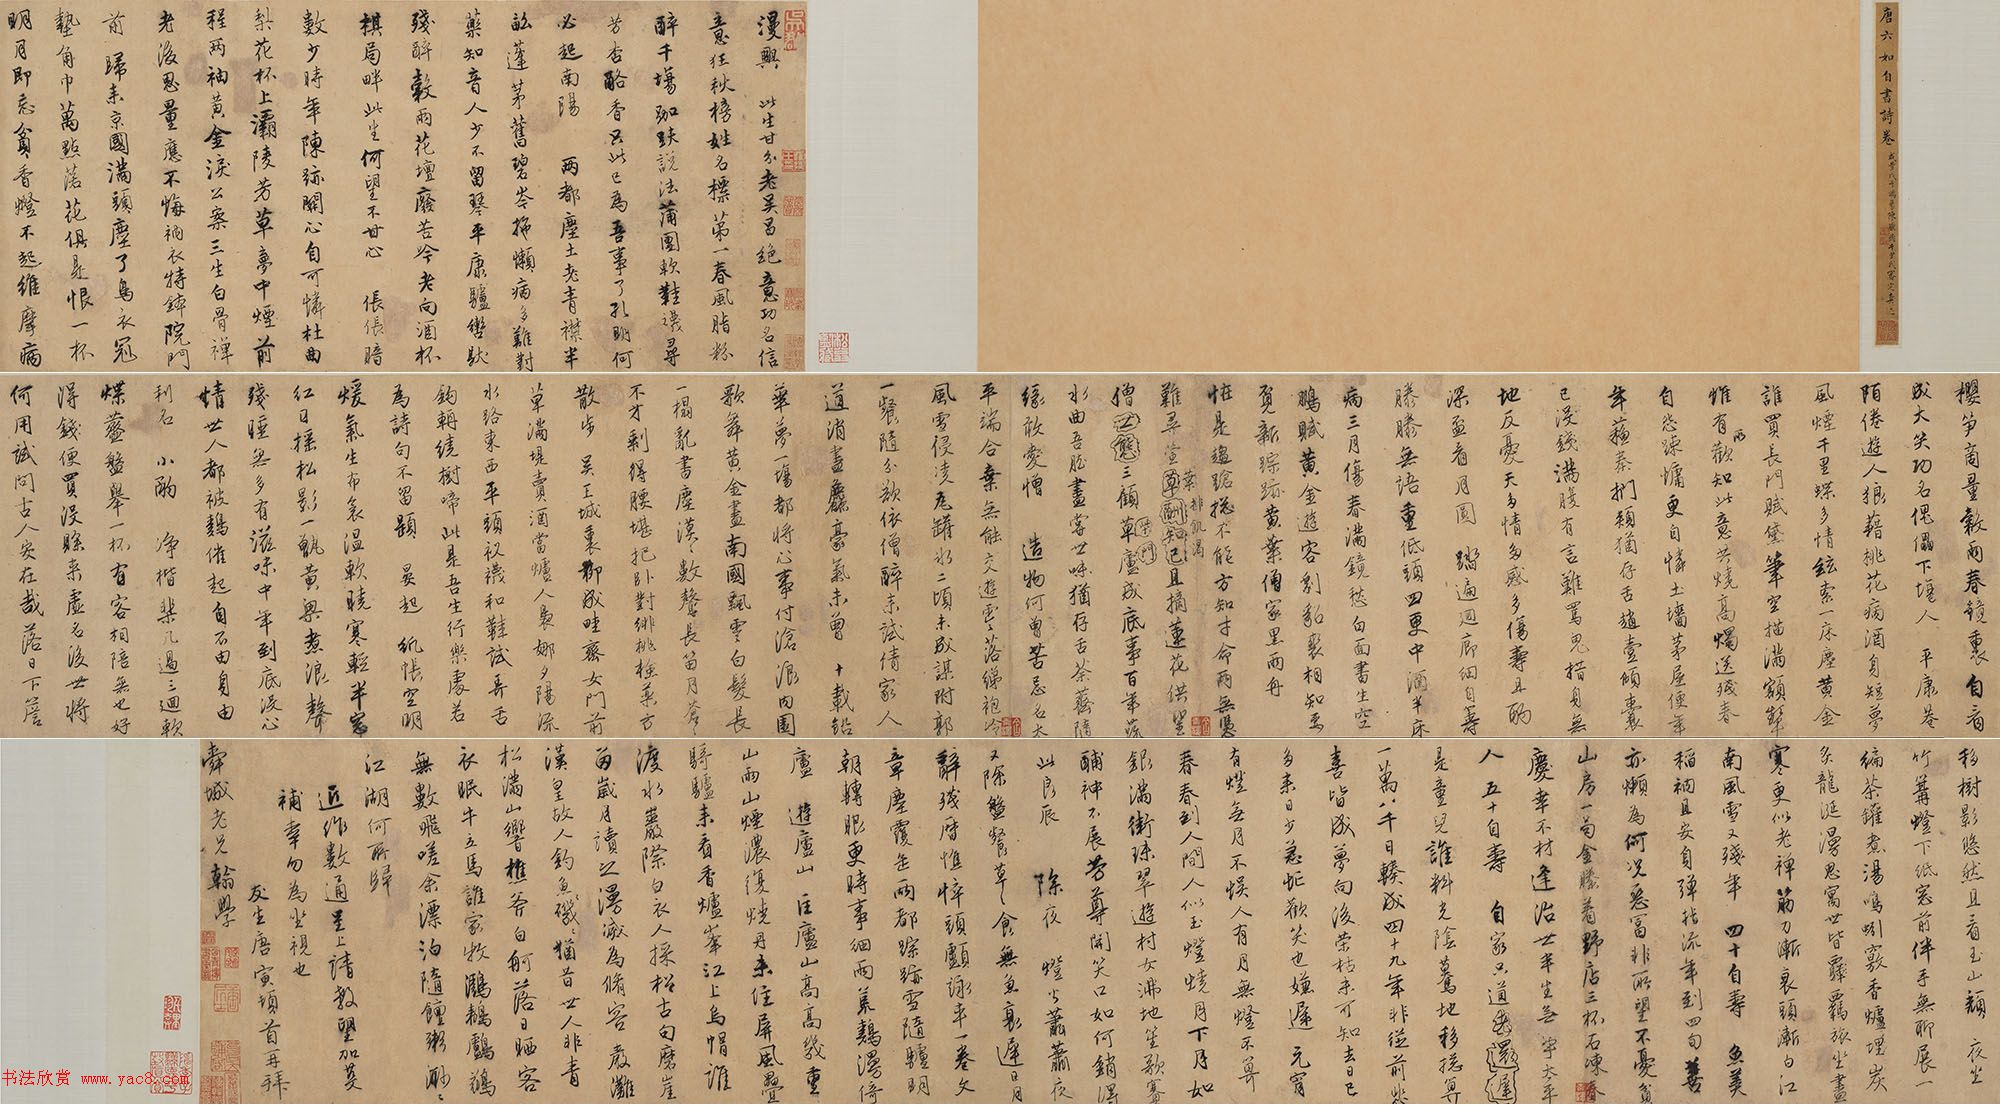 唐六如自書詩卷
漫興 此生甘分老吳昌絕意功名信
意狂秋榜姓名標第一春風脂粉
醉千場跏趺說法蒲團軟鞋襪尋
芳杏酪香只此已為吾事了孔明何
必起南陽 兩都塵土老青襟半
蓬茅舊碧岑懶病多難對
藥知音人少不留琴平康驢轡馱
殘醉穀雨花壇廢苦吟老向酒杯
棋局畔此生何望不甘心 倀倀暗
數少時年陳跡關心自可憐杜曲
梨花杯上灞陵芳草夢中煙前
程兩袖黃金淚公案三生白骨禪
老後思量應不悔衲衣持鉢院門
前 歸來京國滿頭塵了鳥衣冠
墊角巾萬點落花俱是恨一杯
明月即忘貧香燈不起維摩病
櫻筍商量穀雨春鏡裏自看
成大笑功名傀儡下場人 平康巷
陌倦遊人狼藉桃花病酒身短夢
風煙千里蝶多情絃索一床塵黃金
誰買長門賦黛筆空描滿額顰
雖有兩歡知此意共燒高燭送殘春
自怨疎慵更自憐土墻茅屋便年
年蘇秦捫頰猶存舌趙壹傾囊
已沒錢滿腹有言難罵鬼措身無
地反憂天多情多感多傷壽且酌
深盃看月圓 踏遍迴廊細自籌
滕滕無語重低頭四更中酒半床
病三月傷春滿鏡愁白面書生空
鵩賦黃金遊客剝貂裘相知為
覓新踪跡黃葉僧家黑雨舟
怪是趨蹌揔不能方知才命兩無憑
難尋萱草酬知己且摘蓮花供聖
僧三顧草廬成底事百年蔬
水曲吾肱盡嘗世味猶存舌荼薺隨
緣敢愛憎 造物何曾苦忌名太
平端合棄無能交遊零落綈袍冷
風雪侵凌瓦罐冰二頃未成謀附郭
一餐隨分欲依僧醉來試倩家人
道消盡麤豪氣未曾 十載鉛
華夢一場都將心事付滄浪內園
歌舞黃金盡南國飄零白髮長
一榻亂書塵漠漠數聲長笛月蒼蒼
不才剩得腰堪把臥對緋桃檢藥方
散步 吳王城裏柳成畦齊女門前
草滿堤賣酒當爐人裊娜夕陽流
水路東西平頭衩襪和鞋試弄舌
鉤輈繞樹啼此是吾生行樂處若
為詩句不留題 晏起 紙帳空明
煖氣生布衾溫軟曉寒輕半窗
紅日搖松影一甌黃粱煮浪聲
殘睡無多有滋味中年到底沒心
情世人都被鷄催起自不由身由
利名 小酌 淨揩棐几過三迴軟
煠虀盤舉一杯有客相陪無也好
得錢便買沒賒來虛名後世將
何用試問古人安在哉落日下簷
移樹影悠然且看玉山頹 夜坐
竹篝燈下紙窗前伴手無聊展一
編茶罐煮湯鳴蚓竅香爐埋炭
炙龍涎漫思寓世皆羈旅坐盡
寒更似老禪筋力漸衰頭漸白江
南風雪又殘年 四十自壽 魚羹
稻衲且安身彈指流年到四旬善
亦懶為何況惡富非所望不憂貧
山房一局金縢着野店三杯石凍春
慶幸不材逢治世半生無事太平
人 五十自壽 自家只道
是童兒誰料光陰驀地移揔算
一萬八千日轃成四十九年非從前悲
喜皆成夢向後榮枯未可知去日已
多來日少急忙歡笑也嫌遲 元宵
有燈無月不娛人有月無燈不算
春春到人間人似玉燈燒月下月如
銀滿街珠翠遊村女沸地笙歌賽
酺神不展芳尊開笑口如何銷得
此良辰 除夜 燈火蕭蕭夜
又除盤餐草草食無魚衰遲日月
辭殘曆憔悴頭顱詠卒一卷文
章塵覆缶兩都踪跡雪隨驢明
朝轉眼更時事細雨荒鷄漫倚
廬 遊廬山 匡廬山高高幾重
山雨山煙濃復濃移家未住屏風疊
騎驢來看香爐峯江上烏帽誰
渡水巖際白衣人採松古句磨崖
留歲月讀之漫滅為修容 嚴灘
漢皇故人釣魚磯磯猶昔世人非青
松滿山響樵斧白舸落日曬客
衣眠牛立馬誰家牧鸂鶒鸕鶿
無數飛嗟余漂泊隨饘粥渺渺
江湖何所歸
近作數通呈上請教望加
補幸勿為坐視也
友生唐寅頓首再拜
舜城老兄翰學
书法欣赏 www.yac8.com